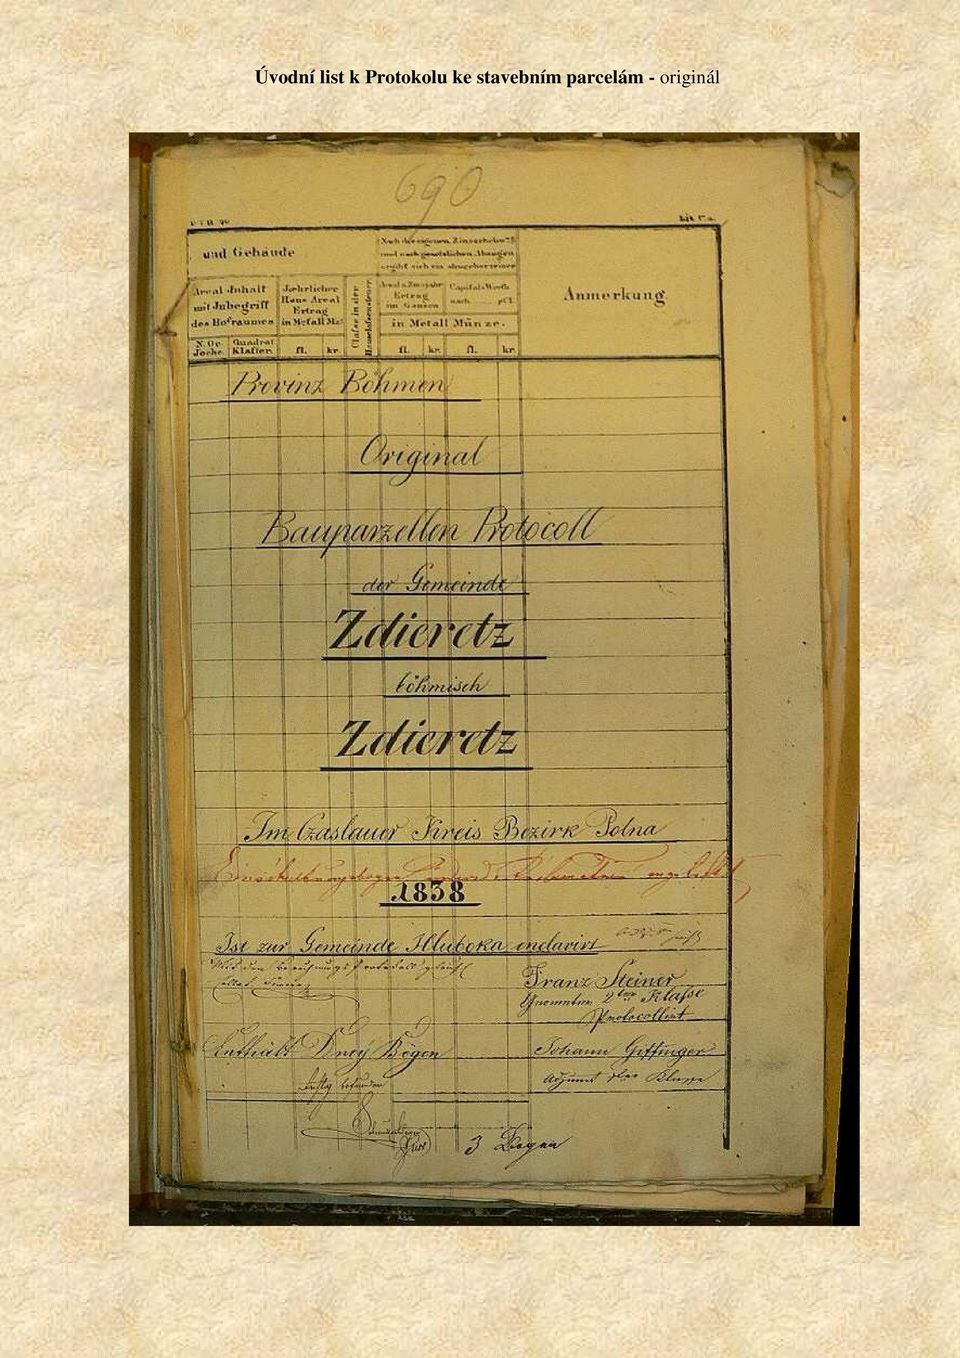 Úvodní list k Protokolu ke stavebním parcelám - originál
690
und Gebäude
Nach der eigenen
und nach gesetzlichen
ergibt sich ein
Anmerkung
Areal Inhalt
mit Inbegriff
des Hofraumes
Jaehrlicher
Haus Areal
Ertrag
in Metall Mz:
Classe in der
Hausclassensteuer
Ertrag
im Ganzen
Capitals Werth
nach pCt.
in Metall Münze.
N. Oe.
Joche
Quadrat
Klafter
fl. kr. fl. kr. fl. kr.
Provinz Böhmen
Original
Bauparzellen Protocoll
der Gemeinde
Zdieretz
böhmisch
Zdieretz
Im Czaslauer Kreis Bezirk Polna
1838
Ist zur Gemeinde Hluboka enclavirt
Franz Steiner
2ter Klasse
Protocollint
Enthält Drey Bögen
Johann Giftinger
Adjunct Klasse
richtig befunden
3 Bogen